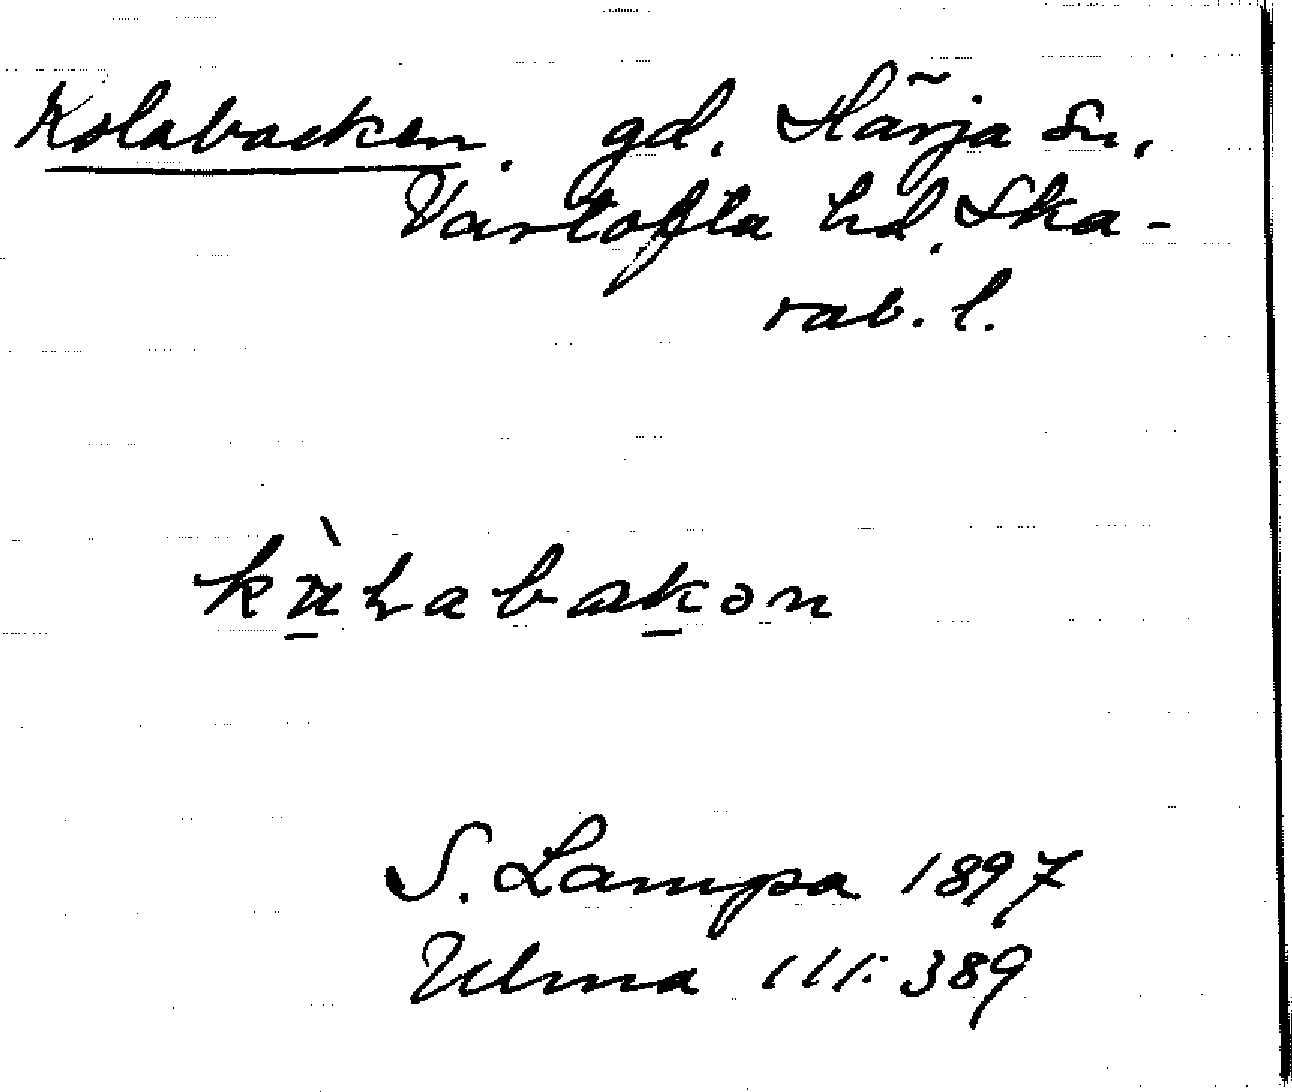 Kolabacken. gd. Härja sn,
Vartofta hd. Ska-
rab. l.
kùlabakən
S. Lampa 1897
Ulma 111:389